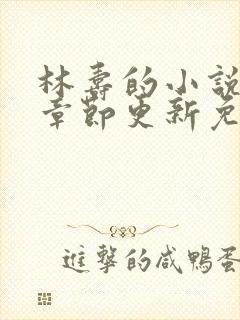 林壽的小說
章節更新免
進擊的咸鴨蛋